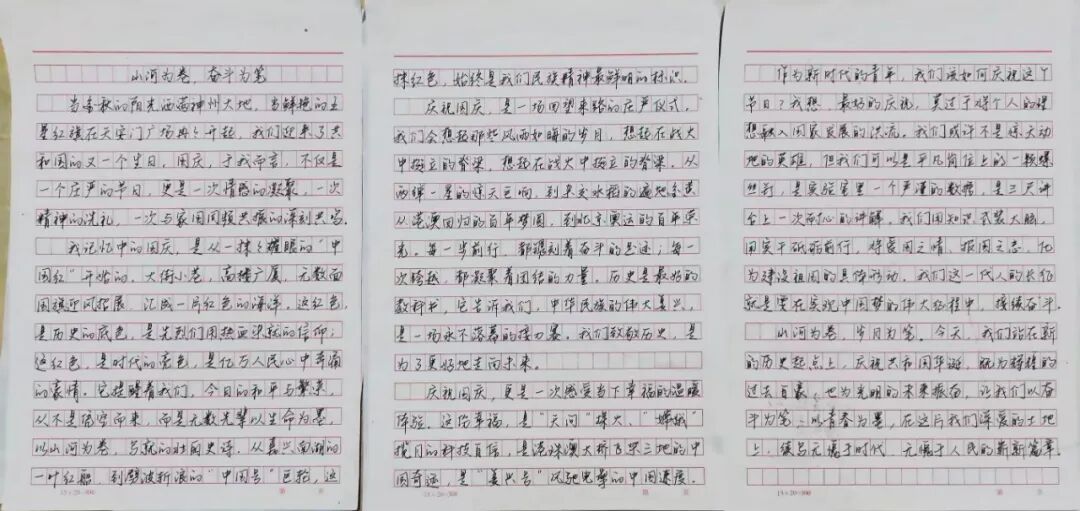 山河为卷,奋斗为笔
当金秋的阳光洒满神州大地,当鲜艳的五
星红旗在天安门广场冉冉升起,我们迎来了共
和国的又一个生日。国庆,于我而言,不仅是
一个庄严的节日,更是一次情感的凝聚,一次
精神的洗礼,一次与家国同频共振的深刻共鸣。
我记忆中的国庆,是从一抹抹耀眼的“中
国红”开始的。大街小巷,高楼广厦,无数面
国旗迎风招展,汇成一片红色的海洋。这红色,
是历史的底色,是先烈们用热血浇就的信仰;
这红色,是时代的亮色,是亿万人民心中奔涌
的豪情。它提醒着我们,今日的和平与繁荣,
从不是凭空而来,而是无数先辈以生命为墨,
以山河为卷,写就的壮丽史诗。从嘉兴南湖的
一叶红船,到劈波斩浪的“中国号”巨轮,这
抹红色,始终是我们民族精神最鲜明的标识。
庆祝国庆,是一场回望来路的庄严仪式。
我们会想起那些风雨如晦的岁月,想起在战火
中挺立的脊梁,想起在战火中挺立的脊梁。从
两弹一星的惊天巨响,到杂交水稻的遍地金黄
从港澳回归的百年梦圆,到北京奥运的百年荣
光。每一步前行,都镌刻着奋斗的足迹;每一
次跨越,都凝聚着团结的力量。历史是最好的
教科书,它告诉我们,中华民族的伟大复兴,
是一场永不落幕的接力赛。我们致敬历史,是
为了更好地走向未来。
庆祝国庆,更是一次感受当下幸福的温暖
体验。这份幸福,是“天问”探火、“嫦娥”
揽月的科技自信,是港珠澳大桥飞架三地的中
国奇迹,是“复兴号”风驰电掣的中国速度。
作为新时代的青年,我们该如何庆祝这个
节日?我想,最好的庆祝,莫过于将个人的理
想融入国家发展的洪流。我们或许不是惊天动
地的英雄,但我们可以是平凡岗位上的一颗螺
丝钉,是实验室里一个严谨的数据,是三尺讲
台上一次耐心的讲解。我们用知识武装大脑,
用实干砥砺前行,将爱国之情、报国之志,化
为建设祖国的具体行动。我们这一代人的长征
就是要在实现中国梦的伟大征程中,接续奋斗。
山河为卷,岁月为笔。今天,我们站在新
的历史起点上,庆祝共和国华诞,既为辉煌的
过去自豪,也为光明的未来振奋。让我们以奋
斗为笔,以青春为墨,在这片我们深爱的土地
上,续写无愧于时代、无愧于人民的崭新篇章。
15×20=300 第 页
15×20=300 第 页
15×20=300 第 页